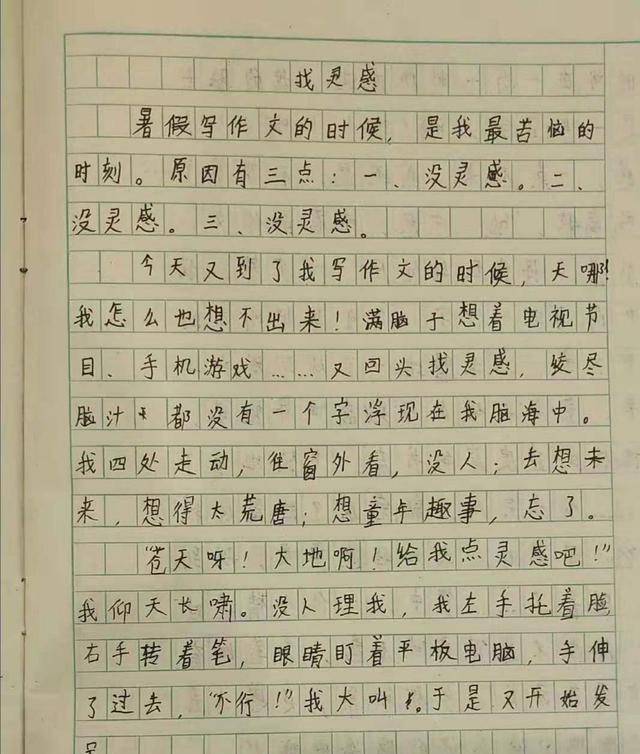 找灵感
暑假写作文的时候，是我最苦恼的
时刻。原因有三点：一、没灵感。二、
没灵感。三、没灵感。
今天又到了我写作文的时候，天哪！
我怎么也想不出来！满脑子想着电视节
目、手机游戏……又回头找灵感，绞尽
脑汁都没有一个字浮现在我脑海中。
我四处走动，住窗外看，没人；去想未
来，想得太荒唐；想童年趣事，忘了。
“苍天呀！大地啊！给我点灵感吧！”
我仰天长啸。没人理我，我左手托着脸，
右手转着笔，眼睛盯着平板电脑，手伸
了过去，“不行！”我大叫。于是又开始发